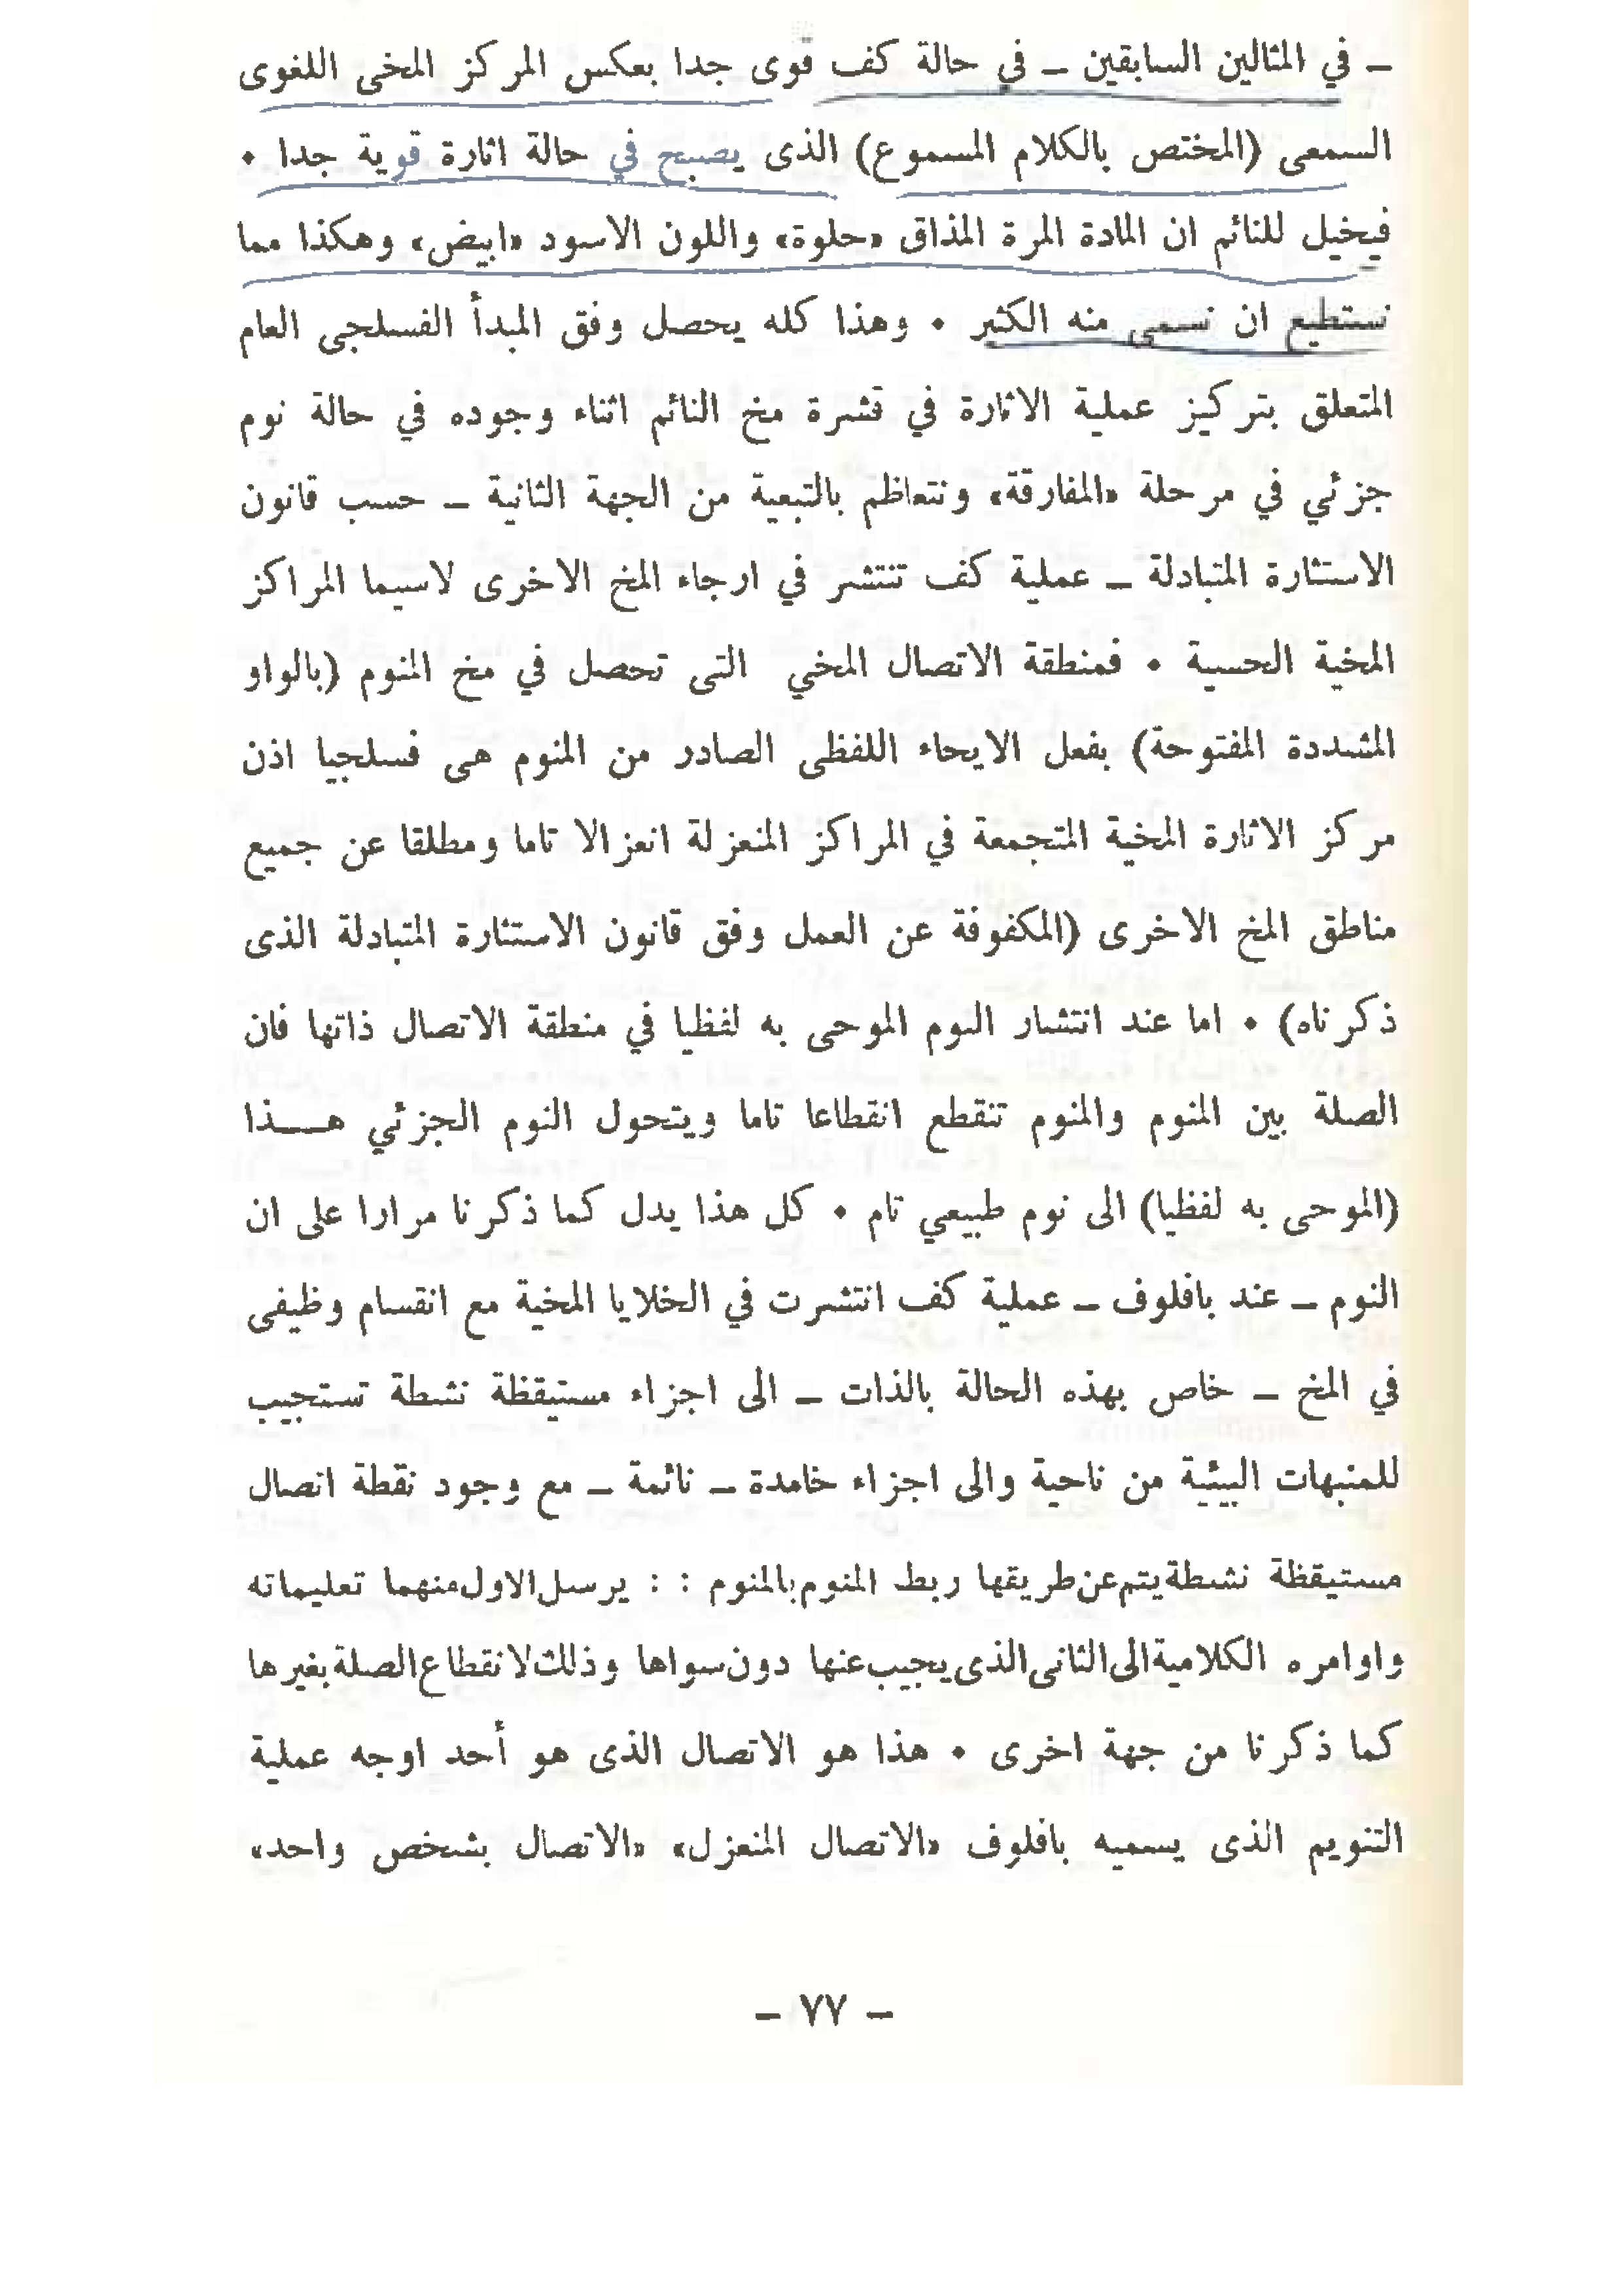 ـ في المثالين السابقين ـ في حالة كف قوى جدا بعكس المركز المخى اللغوى
السمعى (المختص بالكلام المسموع) الذى يصبح في حالة اثارة قوية جدا ٠
فيخيل للنائم ان المادة المرة المذاق «حلوة» واللون الاسود «ابيض» وهكذا مما
نستطيع ان نسمى منه الكثير ٠ وهذا كله يحصل وفق المبدأ الفسلجى العام
المتعلق بتركيز عملية الاثارة في قشرة مخ النائم اثناء وجوده في حالة نوم
جزئي في مرحلة «المفارقة» وتتعاظم بالتبعية من الجهة الثانية ـ حسب قانون
الاستثارة المتبادلة ـ عملية كف تنتشر في ارجاء المخ الاخرى لاسيما المراكز
المخية الحسية ٠ فمنطقة الاتصال المخي التى تحصل في مخ المنوم (بالواو
المشددة المفتوحة) بفعل الايحاء اللفظى الصادر من المنوم هى فسلجيا اذن
مركز الاثارة المخية المتجمعة في المراكز المنعزلة انعزالا تاما ومطلقا عن جميع
مناطق المخ الاخرى (المكفوفة عن العمل وفق قانون الاستثارة المتبادلة الذى
ذكرناه) ٠ اما عند انتشار النوم الموحى به لفظيا في منطقة الاتصال ذاتها فان
الصلة بين المنوم والمنوم تنقطع انقطاعا تاما ويتحول النوم الجزئي هـــذا
(الموحى به لفظيا) الى نوم طبيعي تام ٠ كل هذا يدل كما ذكرنا مرارا على ان
النوم ـ عند بافلوف ـ عملية كف انتشرت في الخلايا المخية مع انقسام وظيفى
في المخ ـ خاص بهذه الحالة بالذات ـ الى اجزاء مستيقظة نشطة تستجيب
للمنبهات البيئية من ناحية والى اجزاء خامدة ـ نائمة ـ مع وجود نقطة اتصال
مستيقظة نشطة يتم عن طريقها ربط المنوم بالمنوم : : يرسل الاول منهما تعليماته
واوامره الكلامية الى الثانى الذى يجيب عنها دون سواها وذلك لانقطاع الصلة بغيرها
كما ذكرنا من جهة اخرى ٠ هذا هو الاتصال الذى هو أحد اوجه عملية
التنويم الذى يسميه بافلوف «الاتصال المنعزل» «الاتصال بشخص واحد»
ـ ٧٧ ـ